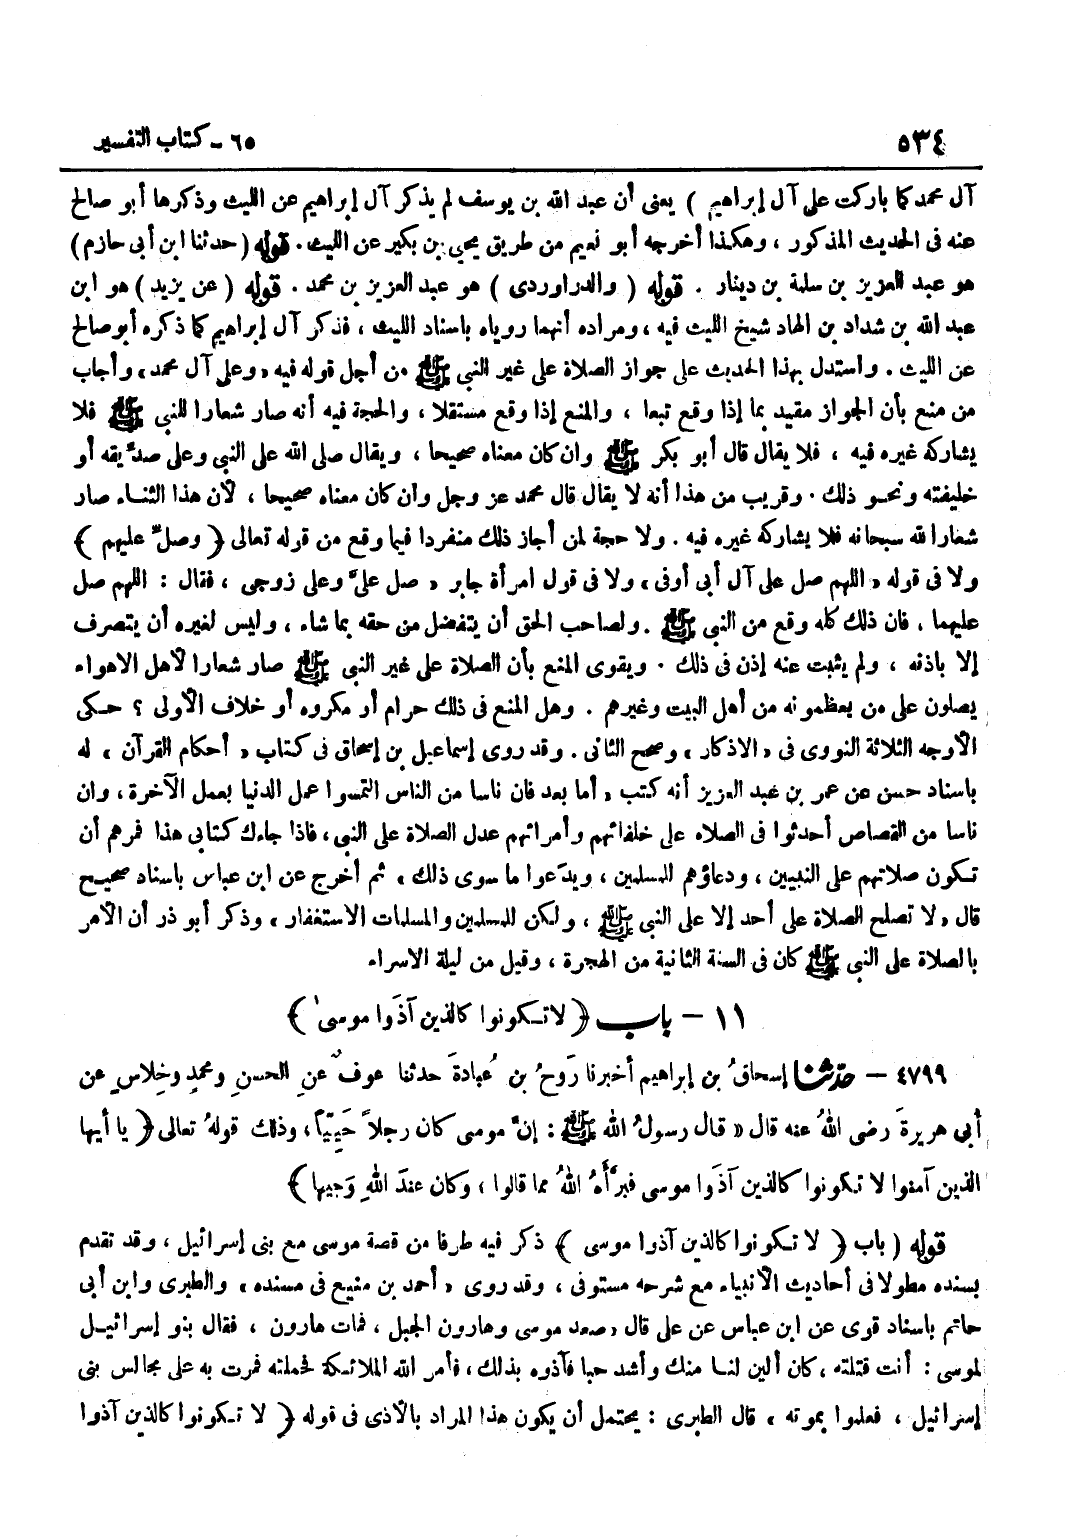 ٥٣٤
٦٥ - كتاب التفسير
آل محمد كما باركت على آل إبراهيم ) يعنى أن عبد الله بن يوسف لم يذكر آل إبراهيم عن الليث وذكرها أبو صالح
عنه فى الحديث المذكور ، وهكذا أخرجه أبو نعيم من طريق يحيى بن بكير عن الليث . قوله ( حدثنا ابن أبى حازم )
هو عبد العزيز بن سلمة بن دينار . قوله ( والدراوردى ) هو عبد العزيز بن محمد . قوله ( عن يزيد ) هو ابن
عبد الله بن شداد بن الهاد شيخ الليث فيه ، ومراده أنهما روياه باسناد الليث ، فذكر آل إبراهيم كما ذكره أبو صالح
عن الليث . واستدل بهذا الحديث على جواز الصلاة على غير النبى ﷺ من أجل قوله فيه « وعلى آل محمد » وأجاب
من منع بأن الجواز مقيد بما إذا وقع تبعا ، والمنع إذا وقع مستقلا ، والحجة فيه أنه صار شعارا للنبى ﷺ فلا
يشاركه غيره فيه ، فلا يقال قال أبو بكر ﷺ وان كان معناه صحيحا ، ويقال صلى الله على النبى وعلى صدّيقه أو
خليفته ونحو ذلك . وقريب من هذا أنه لا يقال قال محمد عز وجل وان كان معناه صحيحا ، لأن هذا الثناء صار
شعارا لله سبحانه فلا يشاركه غيره فيه . ولا حجة لمن أجاز ذلك منفردا فيما وقع من قوله تعالى ﴿ وصلّ عليهم ﴾
ولا فى قوله « اللهم صل على آل أبى أوفى » ولا فى قول امرأة جابر « صل علىّ وعلى زوجى ، فقال : اللهم صل
عليهما ، فان ذلك كله وقع من النبى ﷺ . ولصاحب الحق أن يتفضل من حقه بما شاء ، وليس لغيره أن يتصرف
إلا باذنه ، ولم يثبت عنه إذن فى ذلك . ويقوى المنع بأن الصلاة على غير النبى ﷺ صار شعارا لأهل الاهواء
يصلون على من يعظمونه من أهل البيت وغيرهم . وهل المنع فى ذلك حرام أو مكروه أو خلاف الأولى ؟ حكى
الأوجه الثلاثة النووى فى « الاذكار » وصحح الثانى . وقد روى إسماعيل بن إسحاق فى كتاب « أحكام القرآن » له
باسناد حسن عن عمر بن عبد العزيز أنه كتب « أما بعد فان ناسا من الناس التمسوا عمل الدنيا بعمل الآخرة ، وان
ناسا من القصاص أحدثوا فى الصلاه على خلفائهم وأمرائهم عدل الصلاة على النبى ، فاذا جاءك كتابى هذا فمرهم أن
تكون صلاتهم على النبيين ، ودعاؤهم للمسلمين ، ويدعوا ما سوى ذلك » ثم أخرج عن ابن عباس باسناد صحيح
قال « لا تصلح الصلاة على أحد إلا على النبى ﷺ ، ولكن للمسلمين والمسلمات الاستغفار » وذكر أبو ذر أن الأمر
بالصلاة على النبى ﷺ كان فى السنة الثانية من الهجرة ، وقيل من ليلة الاسراء
١١ - باب ﴿ لا تكونوا كالذين آذَوا موسى ﴾
٤٧٩٩ - حدّثنا إسحاقُ بن إبراهيم أخبرنا رَوحُ بن عُبادةَ حدثنا عوفٌ عنِ الحسنِ ومحمدٍ وخِلاسٍ عن
أبى هريرةَ رضى اللهُ عنه قال « قال رسولُ الله ﷺ : إنّ موسى كان رجلاً حَيِيّاً ، وذلك قولهُ تعالى ﴿ يا أيها
الذين آمنوا لا تكونوا كالذين آذَوا موسى فبرَّأهُ اللهُ مما قالوا ، وكان عندَ اللهِ وَجيها ﴾
قوله ( باب ﴿ لا تكونوا كالذين آذوا موسى ﴾ ) ذكر فيه طرفا من قصة موسى مع بنى إسرائيل ، وقد تقدم
بسنده مطولا فى أحاديث الأنبياء مع شرحه مستوفى ، وقد روى « أحمد بن منيع فى مسنده » والطبرى وابن أبى
حاتم باسناد قوى عن ابن عباس عن على قال « صعد موسى وهارون الجبل ، فمات هارون ، فقال بنو إسرائيل
لموسى : أنت قتلته ، كان ألين لنا منك وأشد حبا فآذوه بذلك ، فأمر الله الملائكة فحملته فمرت به على مجالس بنى
إسرائيل ، فعلموا بموته » قال الطبرى : يحتمل أن يكون هذا المراد بالأذى فى قوله ﴿ لا تكونوا كالذين آذوا